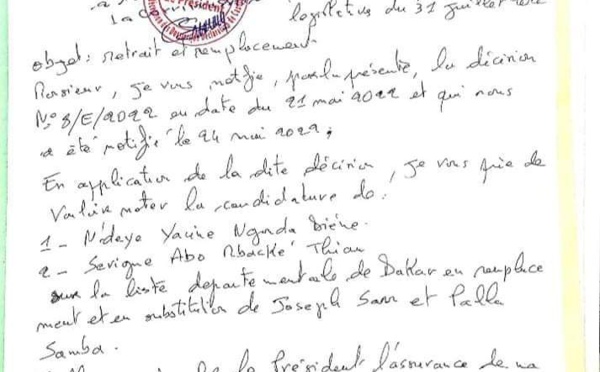 Le Président
la C
législatives du 31 juillet
objet: retrait et remplacement
Monsieur, je vous notifie, par la présente, la décision
N° 8/E/2022 en date du 21 mai 2022 et qui nous
a été notifié le 24 mai 2022;
En application de la dite décision, je vous prie de
la candidature de:
1 - Ndeye Yacine Ngonda Diéne.
2 - Serigne Abo Mbacké Thiam
sur la liste departementale de Dakar en remplace
ment et en substitution de Joseph Sarr et Palla
Samba.
le Président l'assurance de ma